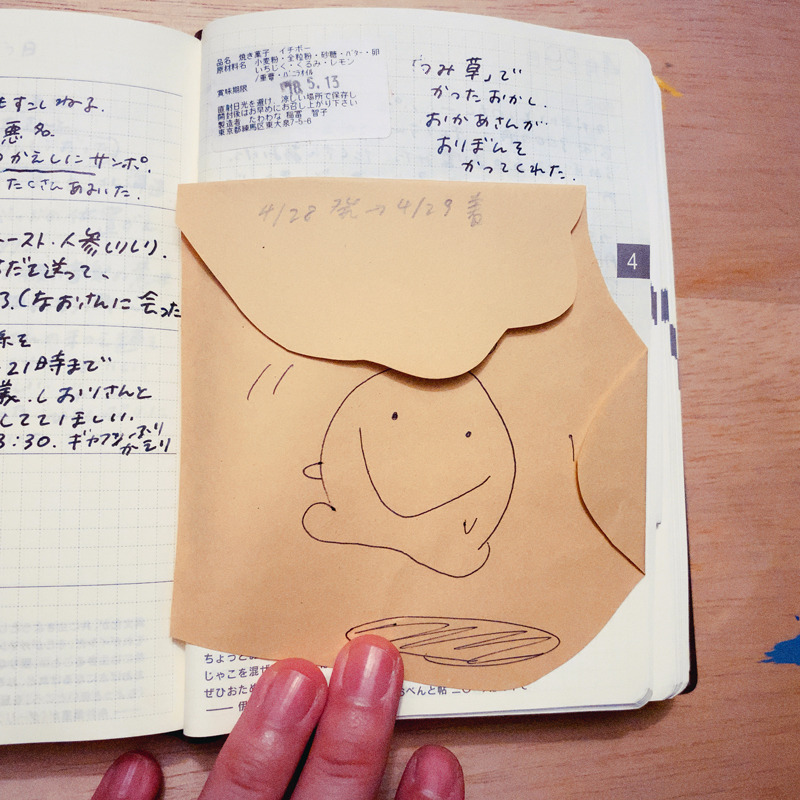 もすこしねる.
悪名.
かえしにサンポ.
たくさんあるいた.
ースト・人参しりしり.
だて送って、
3.(なおさんに会った
21時まで
しおりさんと
しててほしい.
3:30. ギャフン ふり
かえり
品名 焼き菓子 イチボー
原材料名 小麦粉・全粒粉・砂糖・バター・卵
いちじく・くるみ・レモン
/重曹・バニラオイル
賞味期限 '18.5.13
直射日光を避け、涼しい場所で保存し
開封後はお早めにお召し上がり下さい
製造者 たわわな 稲冨 智子
東京都練馬区東大泉7-5-6
「つみ草」で
かったおかし.
おかあさんが
おりぼんを
かってくれた.
4/28 発→4/29 着
4
ちょっと
じゃこを混ぜ
ぜひおため
べんと帖
—— 伊